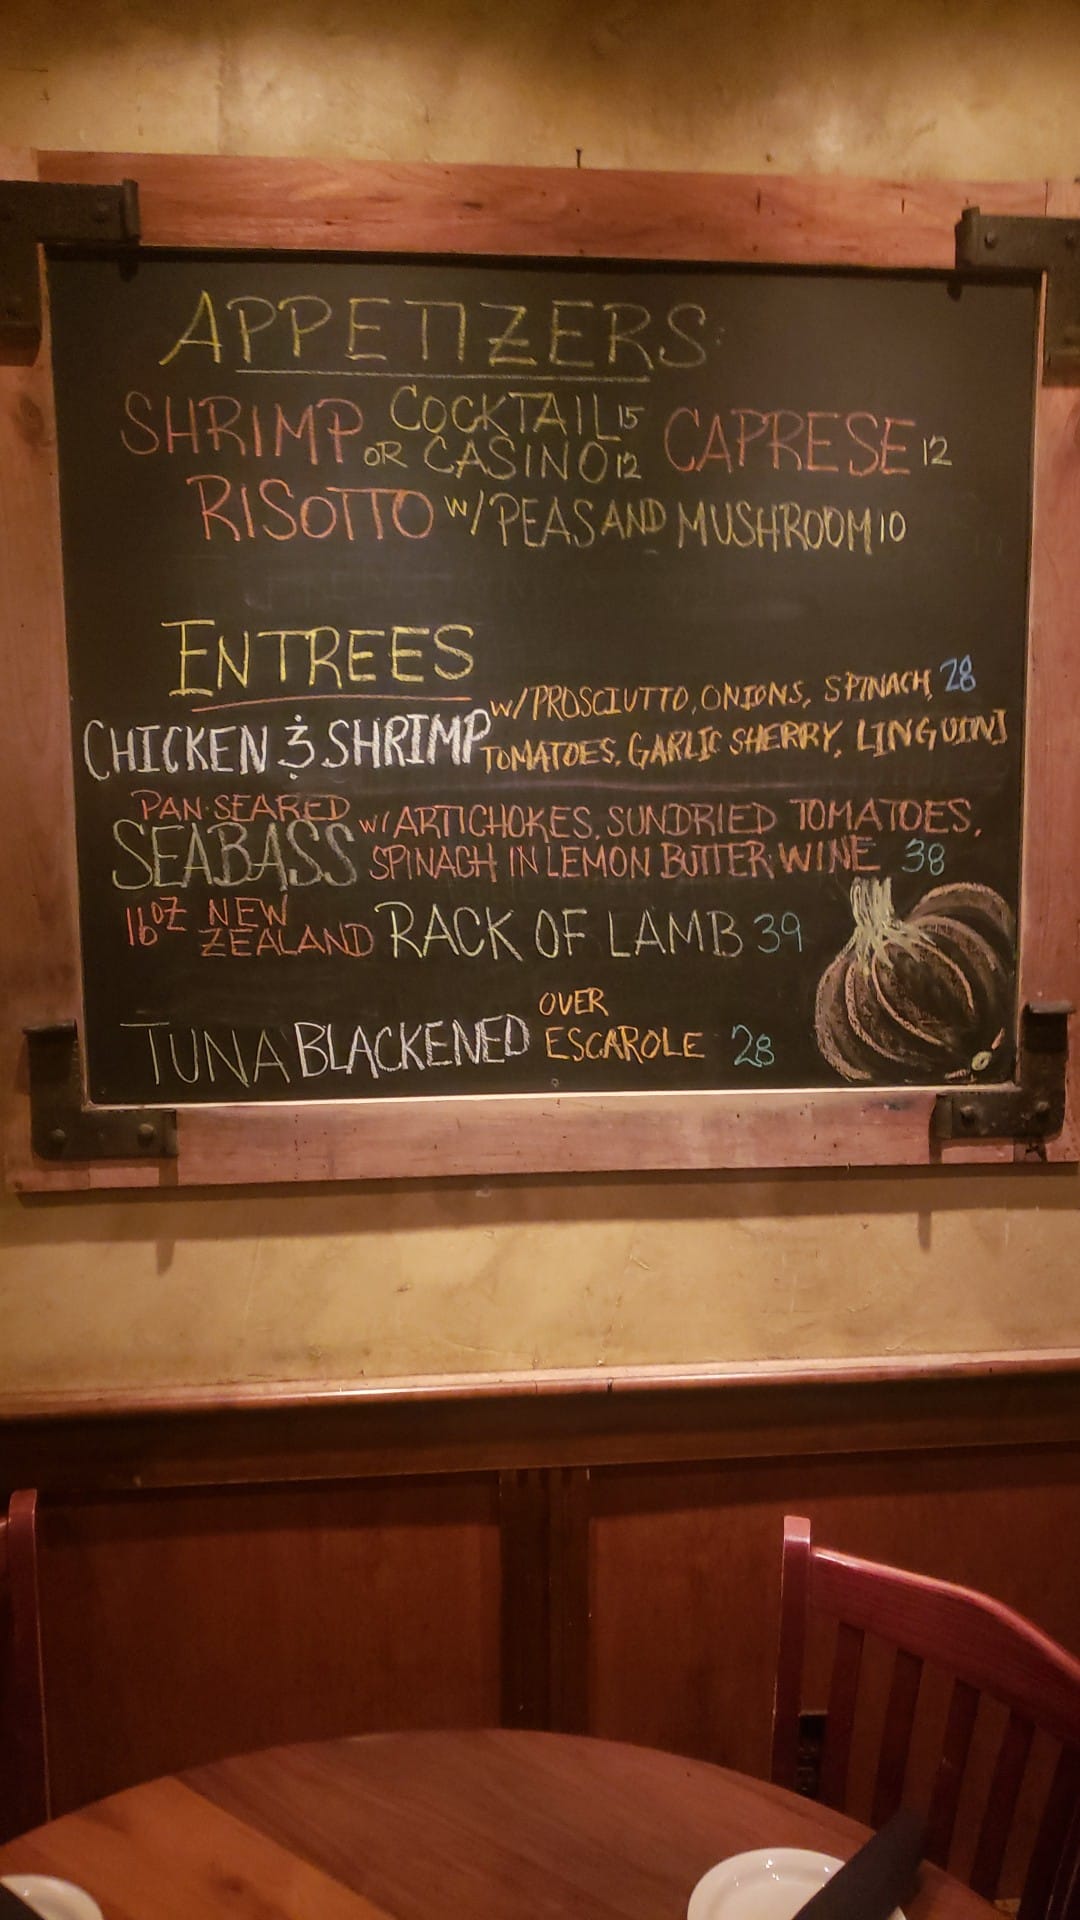 APPETIZERS:
SHRIMP COCKTAIL 15 OR CASINO 12 CAPRESE 12
RISOTTO W/ PEAS AND MUSHROOM 10
ENTREES
CHICKEN & SHRIMP W/ PROSCIUTTO, ONIONS, SPINACH, 28
TOMATOES, GARLIC SHERRY, LINGUINI
PAN-SEARED
SEABASS W/ ARTICHOKES, SUNDRIED TOMATOES,
SPINACH IN LEMON BUTTER WINE 38
16 OZ NEW ZEALAND RACK OF LAMB 39
TUNA BLACKENED OVER ESCAROLE 28